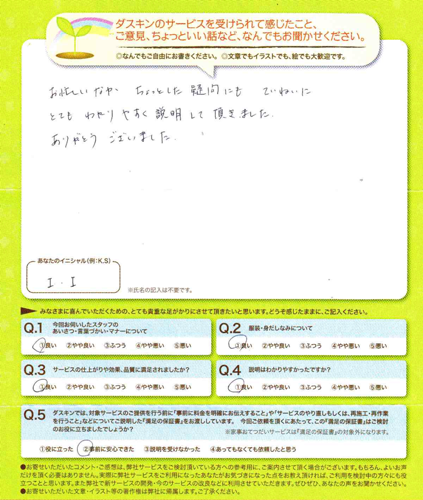 ダスキンのサービスを受けられて感じたこと、
ご意見、ちょっといい話など、なんでもお聞かせください。
◎なんでもご自由にお書きください。◎文章でもイラストでも、絵でも大歓迎です。
お忙しいなか ちょっとした疑問にも ていねいに
とても わかりやすく説明して頂きました。
ありがとうございました。
あなたのイニシャル(例:K.S)
I.I
※氏名の記入は不要です。
みなさまに喜んでいただくための、とても貴重な足がかりにさせて頂きたいと思います。どうぞ感じたままに、ご記入ください。
Q.1 今回お伺いしたスタッフの
あいさつ・言葉づかい・マナーについて
①良い ②やや良い ③ふつう ④やや悪い ⑤悪い
Q.2 服装・身だしなみについて
①良い ②やや良い ③ふつう ④やや悪い ⑤悪い
Q.3 サービスの仕上がりや効果、品質に満足されましたか?
①良い ②やや良い ③ふつう ④やや悪い ⑤悪い
Q.4 説明はわかりやすかったですか?
①良い ②やや良い ③ふつう ④やや悪い ⑤悪い
Q.5 ダスキンでは、対象サービスのご提供を行う前に「事前に料金を明確にお伝えすること」や「サービスのやり直しもしくは、再施工・再作業
を行うこと」などについてご説明した「満足の保証書」をお渡ししています。 今回ご依頼を頂くにあたって、この「満足の保証書」はご検討
のお役に立ちましたでしょうか?
※家事おてつだいサービスは「満足の保証書」の対象外になります。
①役に立った ②事前に安心できた ③説明を受けなかった ④あってもなくても依頼したと思う
●お寄せいただいたコメント・ご感想は、弊社サービスをご検討頂いている方への参考用に、ご案内させて頂く場合がございます。もちろん、よいお声
だけを頂く必要はありません。実際に弊社サービスをご利用になったあなたがお気づきになった点をお教え頂ければ、ご利用検討中の方々にも役
立つことと思います。また弊社で新サービスの開発・今のサービスの改良などに利用させていただきます。ぜひぜひ、あなたの声をお聞かせください。
●お寄せいただいた文章・イラスト等の著作権は弊社に帰属します。ご了承ください。